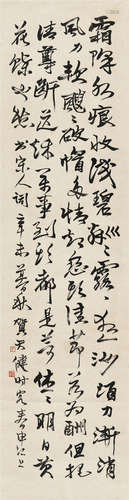 霜降水痕收浅碧鳞〻露远洲酒力渐消
风力软飕〻破帽多情却恋头佳节若为酬但把
清尊断送秋万事到头都是梦休〻明日黄
花蝶也愁 书宋人词 辛未暮秋 贺天健时客春申江上